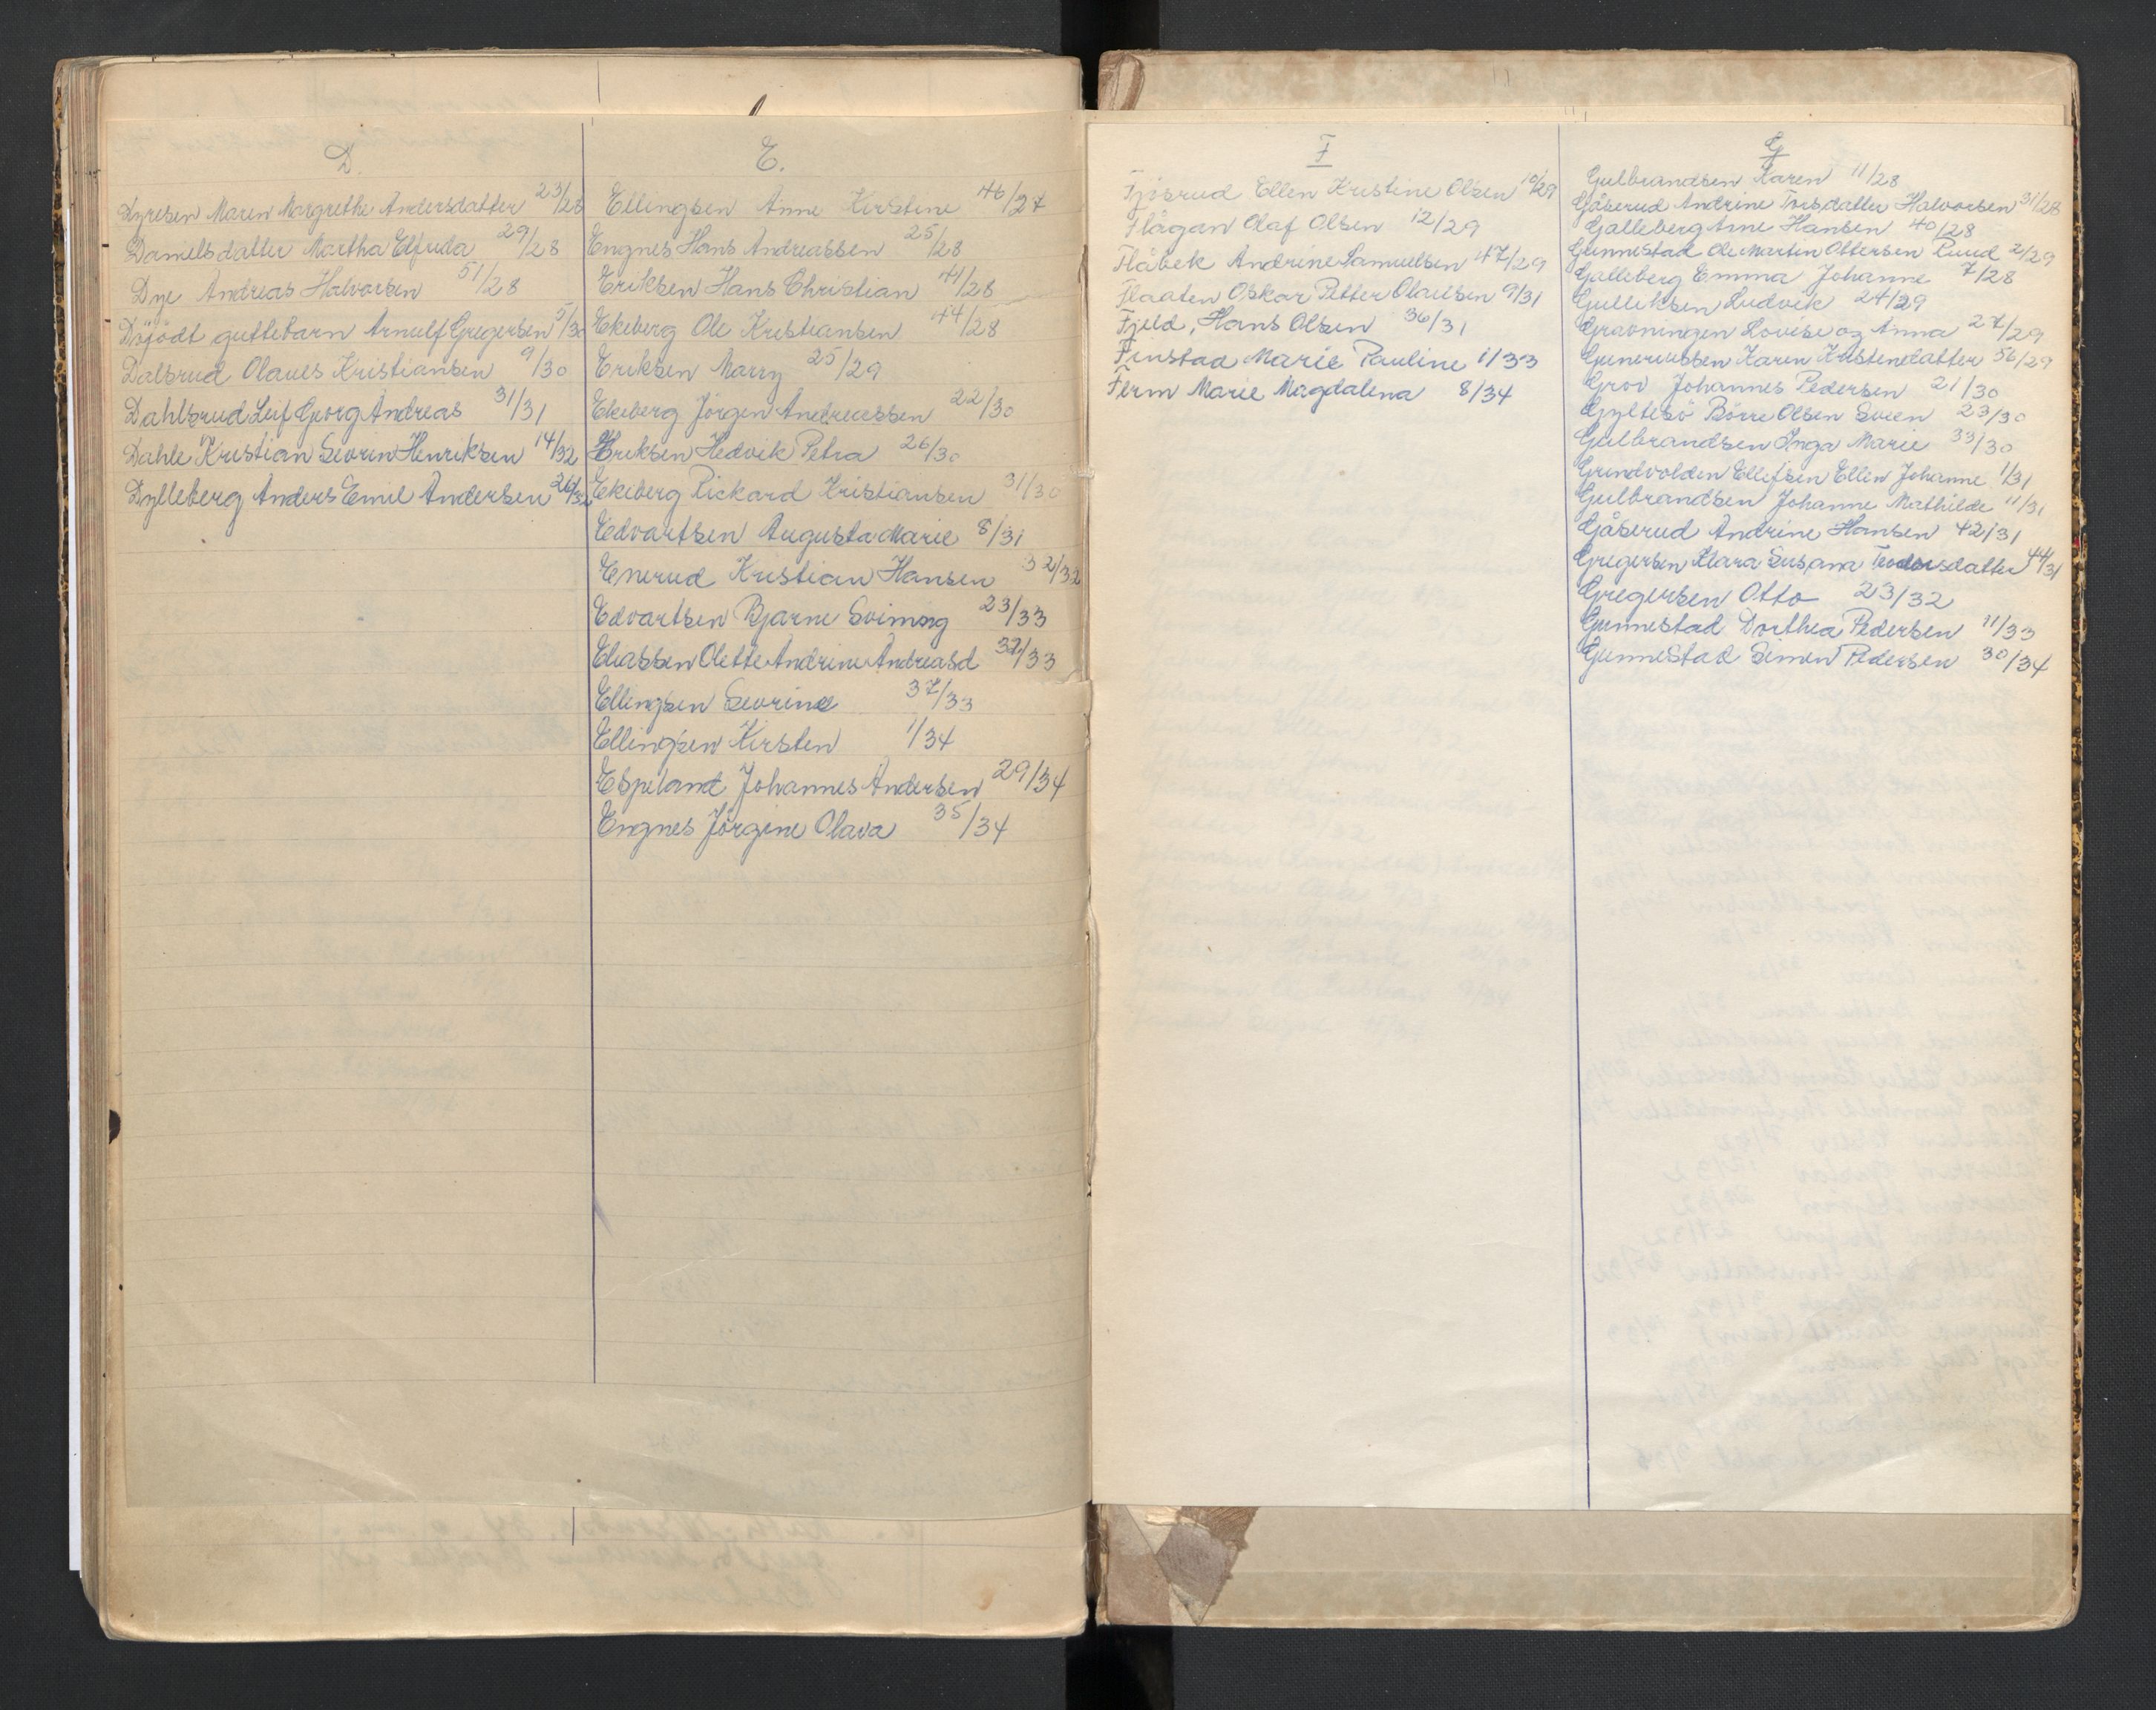 D.
Dyresen Maren Margrethe Andersdatter 23/28
Danielsdatter Martha Elfrida 29/28
Dye Andreas Halvorsen 51/28
Döfödt guttebarn Arnulf Gregersen 5/30
Dalsrud Olaues Kristiansen 9/30
Dahlsrud Leif Georg Andreas 31/31
Dahle Kristian Sevrin Henriksen 14/32
Dylleberg Anders Emil Andersen 26/32
E.
Ellingsen Anne Kirstine 46/27
Engnes Hans Andreassen 25/28
Eriksen Hans Christian 41/28
Ekeberg Ole Kristiansen 44/28
Eriksen Marry 25/29
Ekeberg Jörgen Andreassen 22/30
Eriksen Hedvik Petra 26/30
Ekeberg Rickard Kristiansen 31/30
Edvartsen Augusta Marie 8/31
Enerud Kristian Hansen 32/32
Edvartsen Bjarne 23/33
Eliassen Olette Andrine Andreasd 32/33
Ellingsen Sevrine 37/33
Ellingsen Kirsten 1/34
Espeland Johannes Andersen 29/34
Engnes Jörgine Olava 35/34
F
Fjösrud Ellen Kristine Olsen 10/29
Flågan Olaf Olsen 12/29
Flåbek Andrine Samuelsen 47/29
Flaaten Oskar Petter Olausen 9/31
Fjeld, Hans Olsen 36/31
Finstad Marie Pauline 1/33
Ferm Marie Magdalena 8/34
G
Gulbrandsen Karen 11/28
Gåserud Andrine Torsdatter Halvorsen 31/28
Galleberg Arne Hansen 40/28
Gunnestad Ole Martin Ottersen Ruud 2/29
Galleberg Emma Johanne 7/28
Gulliksen Ludvik 24/29
Gravningen Lovise og Anna 27/29
Gunerussen Karen Kristendatter 56/29
Grov Johannes Pedersen 21/30
Gyltesö Börre Olsen Sveen 23/30
Gulbrandsen Inga Marie 33/30
Grindvolden Ellefsen Ellen Johanne 1/31
Gulbrandsen Johanne Mathilde 11/31
Gåserud Andrine Hansen 42/31
Gregersen Klara Susana Teodorsdatter 44/31
Gregersen Otto 23/32
Gunnestad Dorthea Pedersen 11/33
Gunnestad Simen Pedersen 30/34